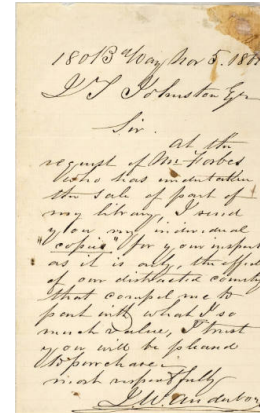 180 B Way Nov 5. 186
J T Johnston Esqr
Sir.
At the
request of Mr Forbes
who has undertaken
the sale of part of
my library, I send
you my individual
"copies" for your inspect
as it is only, the effect
of our distracted country
that compel me to
part with what I so
much value, I trust
you will be pleased
to purchase.
most respectfully